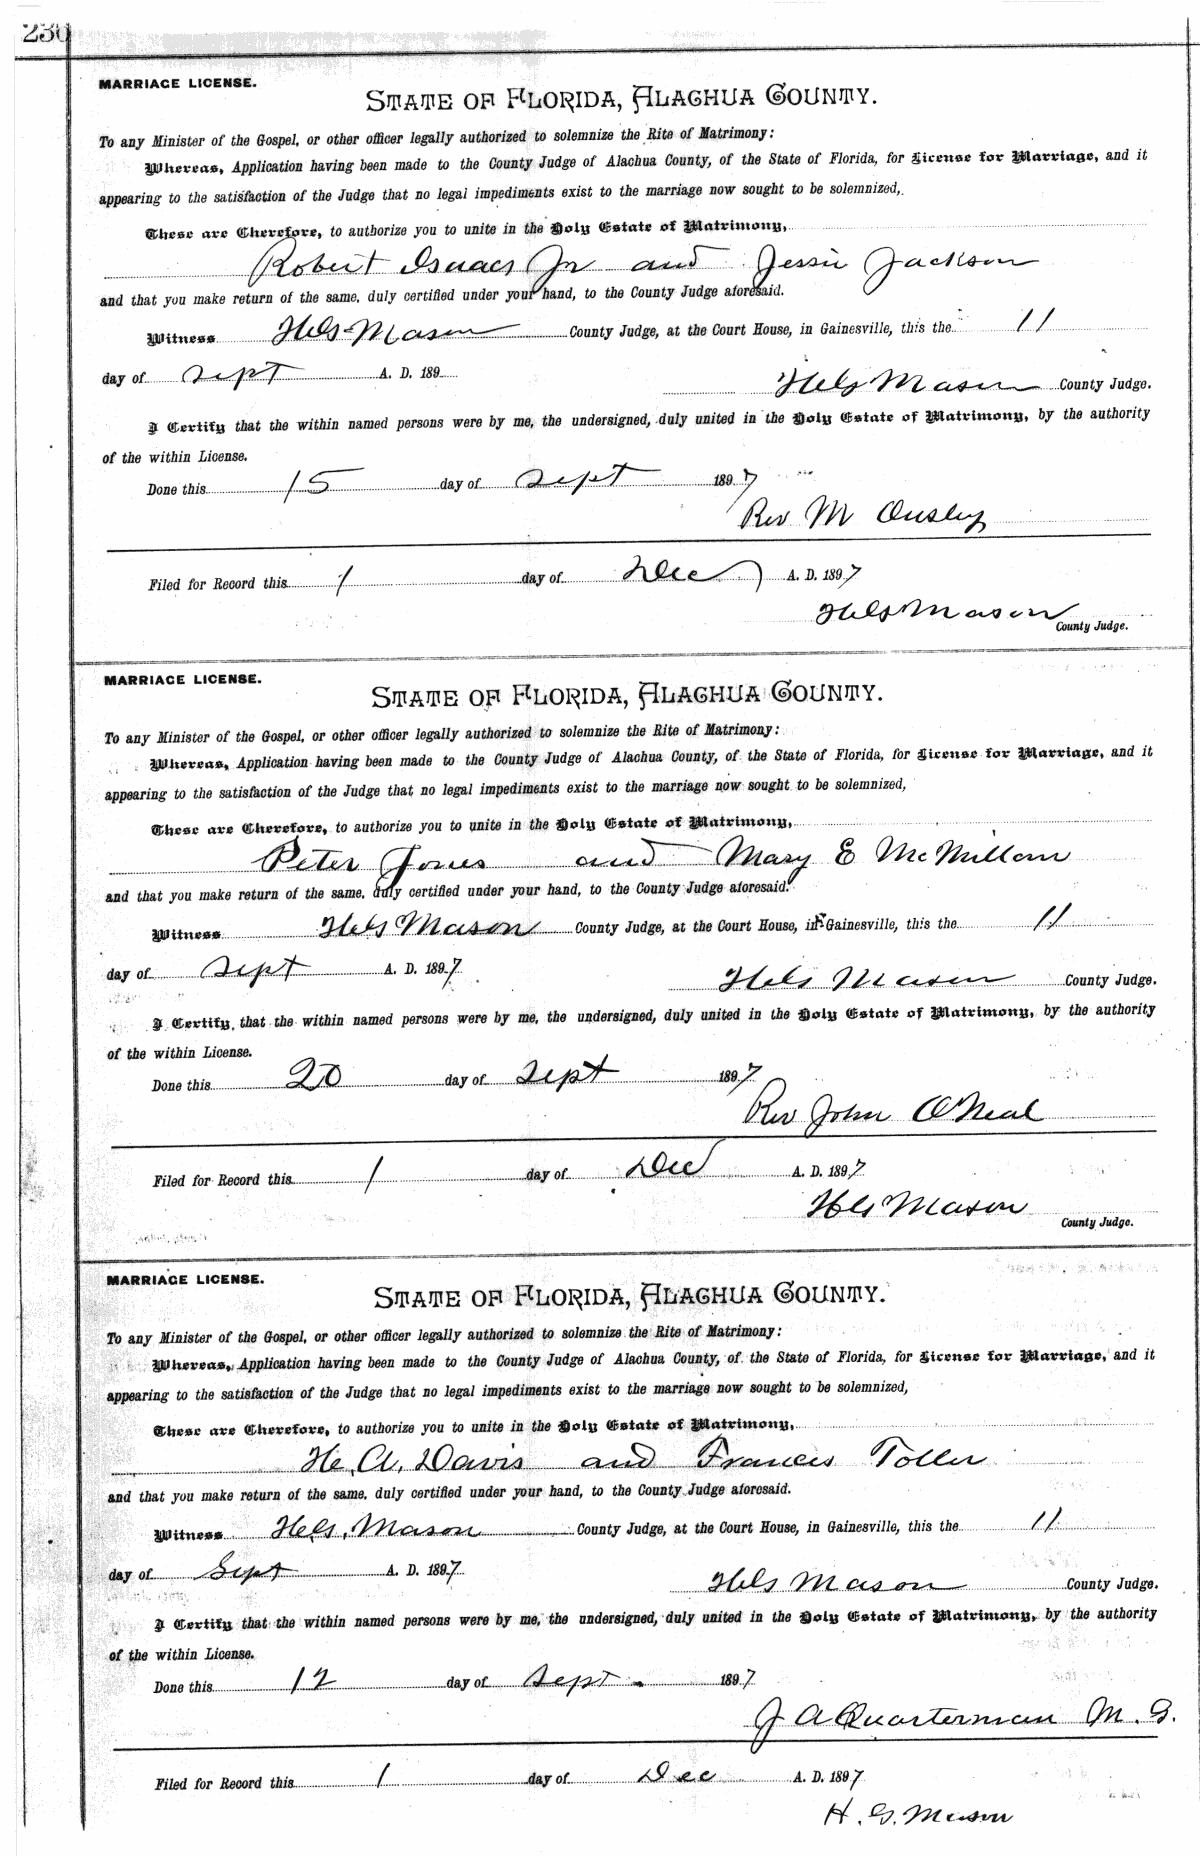 230
MARRIAGE LICENSE.
STATE OF FLORIDA, ALACHUA COUNTY.
To any Minister of the Gospel, or other officer legally authorized to solemnize the Rite of Matrimony:
Whereas, Application having been made to the County Judge of Alachua County, of the State of Florida, for License for Marriage, and it
appearing to the satisfaction of the Judge that no legal impediments exist to the marriage now sought to be solemnized,
These are Therefore, to authorize you to unite in the Holy Estate of Matrimony,
Robert Isaacs Jr and Jessie Jackson
and that you make return of the same, duly certified under your hand, to the County Judge aforesaid.
Witness H. G. Mason County Judge, at the Court House, in Gainesville, this the 11
day of Sept A. D. 189
H. G. Mason County Judge.
I Certify that the within named persons were by me, the undersigned, duly united in the Holy Estate of Matrimony, by the authority
of the within License.
Done this 15 day of Sept 1897
Rev M Ousley
Filed for Record this 1 day of Dec A. D. 1897
H. G. Mason
County Judge.
MARRIAGE LICENSE.
STATE OF FLORIDA, ALACHUA COUNTY.
To any Minister of the Gospel, or other officer legally authorized to solemnize the Rite of Matrimony:
Whereas, Application having been made to the County Judge of Alachua County, of the State of Florida, for License for Marriage, and it
appearing to the satisfaction of the Judge that no legal impediments exist to the marriage now sought to be solemnized,
These are Therefore, to authorize you to unite in the Holy Estate of Matrimony,
Peter Jones and Mary E McMillam
and that you make return of the same, duly certified under your hand, to the County Judge aforesaid.
Witness H. G. Mason County Judge, at the Court House, in Gainesville, this the 11
day of Sept A. D. 1897
H. G. Mason County Judge.
I Certify, that the within named persons were by me, the undersigned, duly united in the Holy Estate of Matrimony, by the authority
of the within License.
Done this 20 day of Sept 1897
Rev John O'Neal
Filed for Record this 1 day of Dec A. D. 1897
H. G. Mason
County Judge.
MARRIAGE LICENSE.
STATE OF FLORIDA, ALACHUA COUNTY.
To any Minister of the Gospel, or other officer legally authorized to solemnize the Rite of Matrimony:
Whereas, Application having been made to the County Judge of Alachua County, of the State of Florida, for License for Marriage, and it
appearing to the satisfaction of the Judge that no legal impediments exist to the marriage now sought to be solemnized,
These are Therefore, to authorize you to unite in the Holy Estate of Matrimony,
H. A. Davis and Frances Toller
and that you make return of the same, duly certified under your hand, to the County Judge aforesaid.
Witness H. G. Mason County Judge, at the Court House, in Gainesville, this the 11
day of Sept A. D. 1897
H. G. Mason County Judge.
I Certify that the within named persons were by me, the undersigned, duly united in the Holy Estate of Matrimony, by the authority
of the within License.
Done this 12 day of Sept. 1897
J A Quarterman M. G.
Filed for Record this 1 day of Dec A. D. 1897
H. G. Mason